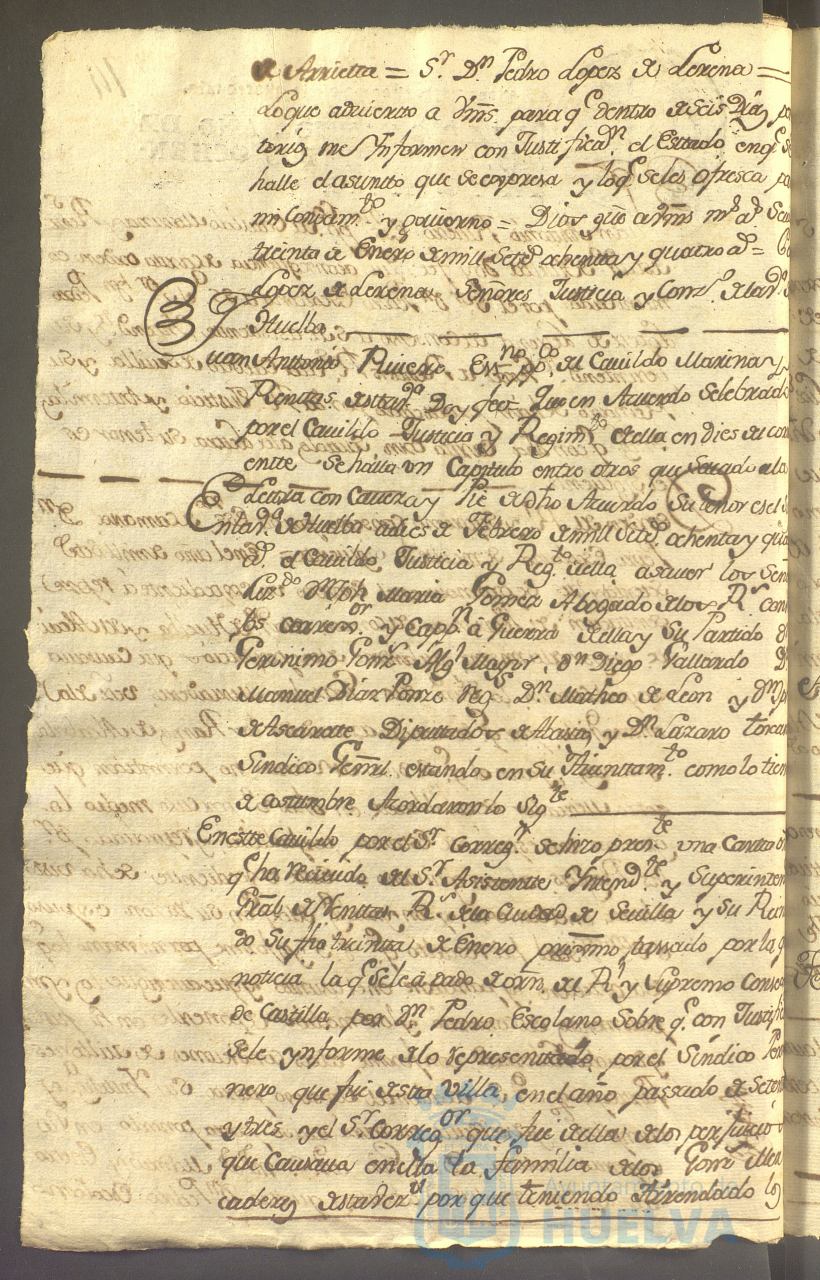 de Arrietta = S.r D.n Pedro Lopez de Lerena =
Lo que advierto a Vms. para q.e dentro de seis Dias
me Ynformen con Justificaz.n el Estado en q.e se
halle el asumto que se expresa y lo q.e seles ofresca
mi Conzim.to y govierno = Dios gûe a Vms m.s a.s
treinta de Enero de mill Setez.s ochenta y quatro a.s =
Lopez de Lerena. Señores Justicia y Conz.o de la v.a de
Huelba
Juan Anttonio Rivero Ess.no pp.co de Cavildo Marina y
Renttas de esta v.a Doy fee: Que en Acuerdo Selebrado
por el Cavildo Justicia y Regim.to de ella en dies de corri
entte se halla un Capitulo entre otros que Sacado a la
Letra con Cavesa y Pie de dho Acuerdo Su thenor es el
En la v.a de Huelba a dies de Febrero de mill Setez.s ochenta y qua
a.s el Cavildo Justicia y Reg.to de ella asaver los Señ
Liz.do D.n Joh Maria Gomez Abogado de los R.s Con
y Capp.n a Guerra de ella y Su Partido
Geronimo Gom.z Alg.l Mayor, D.n Diego Gallardo D.n
Manuel Diaz Ponze Reg.s D.n Matheo de Leon y D.n
de Ascarate Diputtados de Abastos y D.n Lazaro
Sindico Genrl. estando en Su Ajunttam.to como lo tien
de costumbre Acordaron lo Sig.te
En estte Cavildo por el S.r Correg.r se hizo pres.te una Cartta
q.e ha recivido del S.r Asistentte Yntend.te y Superinten
Gral de Renttas R.s de la Ciudad de Sevilla y su Rein
do Su fha treinta de Enero proximo passado por la q
noticia la q.e se le â dado de orn. del R.l y Supremo Conse
de Castilla por D.n Pedro Escolano Sobre q.e con Justifi
se le ynforme de lo representado por el Sindico Per
nero que fue de esta Villa, en el año passado de Setén
y tres y el S.r Correg.or que fue de ella de los perjuicio
que Causava en ella la familia de los Gom.z
caderes de esta v.a porque teniendo Arrendado los
Ayuntamiento de
HUELVA